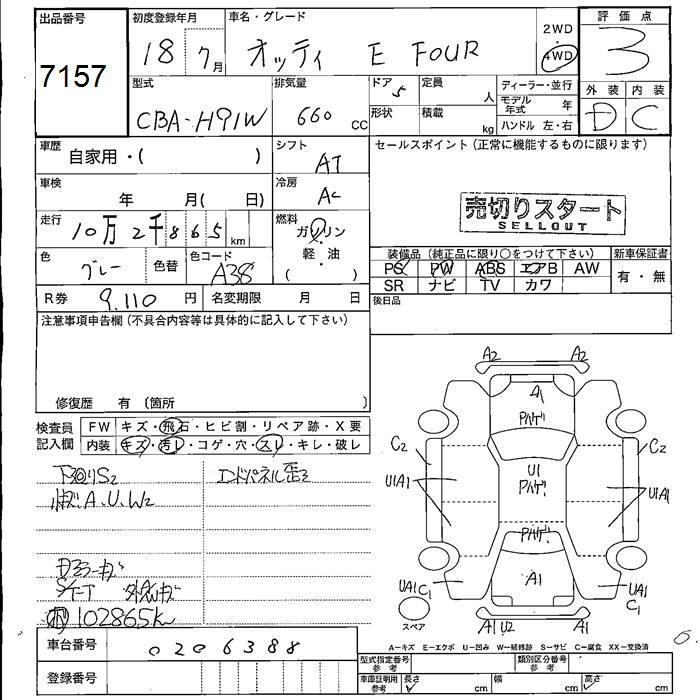 出品番号
7157
初度登録年月
18 7月
車名・グレード
オッティ E FOUR
2WD
4WD
評価点
3
型式
CBA-H91W
排気量
660 cc
ドア 5
形状
定員 人
積載 kg
ディーラー・並行
モデル年式 年
ハンドル 左・右
外装 内装
D C
車歴
自家用・( )
シフト
AT
セールスポイント(正常に機能するものに限ります)
車検
年 月( 日)
冷房
AC
売切りスタート
SELLOUT
走行
10万2千865km
燃料
ガソリン
軽・油
( )
色
グレー
色替
色コード
A38
装備品(純正品に限り○をつけて下さい)
新車保証書
PS PW ABS エアB AW
有・無
SR ナビ TV カワ
後日品
R券 9,110 円
名変期限 月 日
注意事項申告欄(不具合内容等は具体的に記入して下さい)
修復歴 有〔箇所
検査員記入欄
FW キズ・飛石・ヒビ割・リペア跡・X要
内装 キズ・汚レ・コゲ・穴・スレ・キレ・破レ
エンドパネル歪
A.U.W2
102865k
A2 A2
A1
U1
C2 C2
U1A1 U1A1
A1
UA1 C1
UA1 C1
A1 U2 A1
スペア
6.
車台番号
0206388
登録番号
A－キズ E－エクボ U－凹み W－補修跡 S－サビ C－腐食 XX－交換済
型式指定番号 参考
類別区分番号 参考
車庫証明用 参考
長さ cm
幅 cm
高さ cm